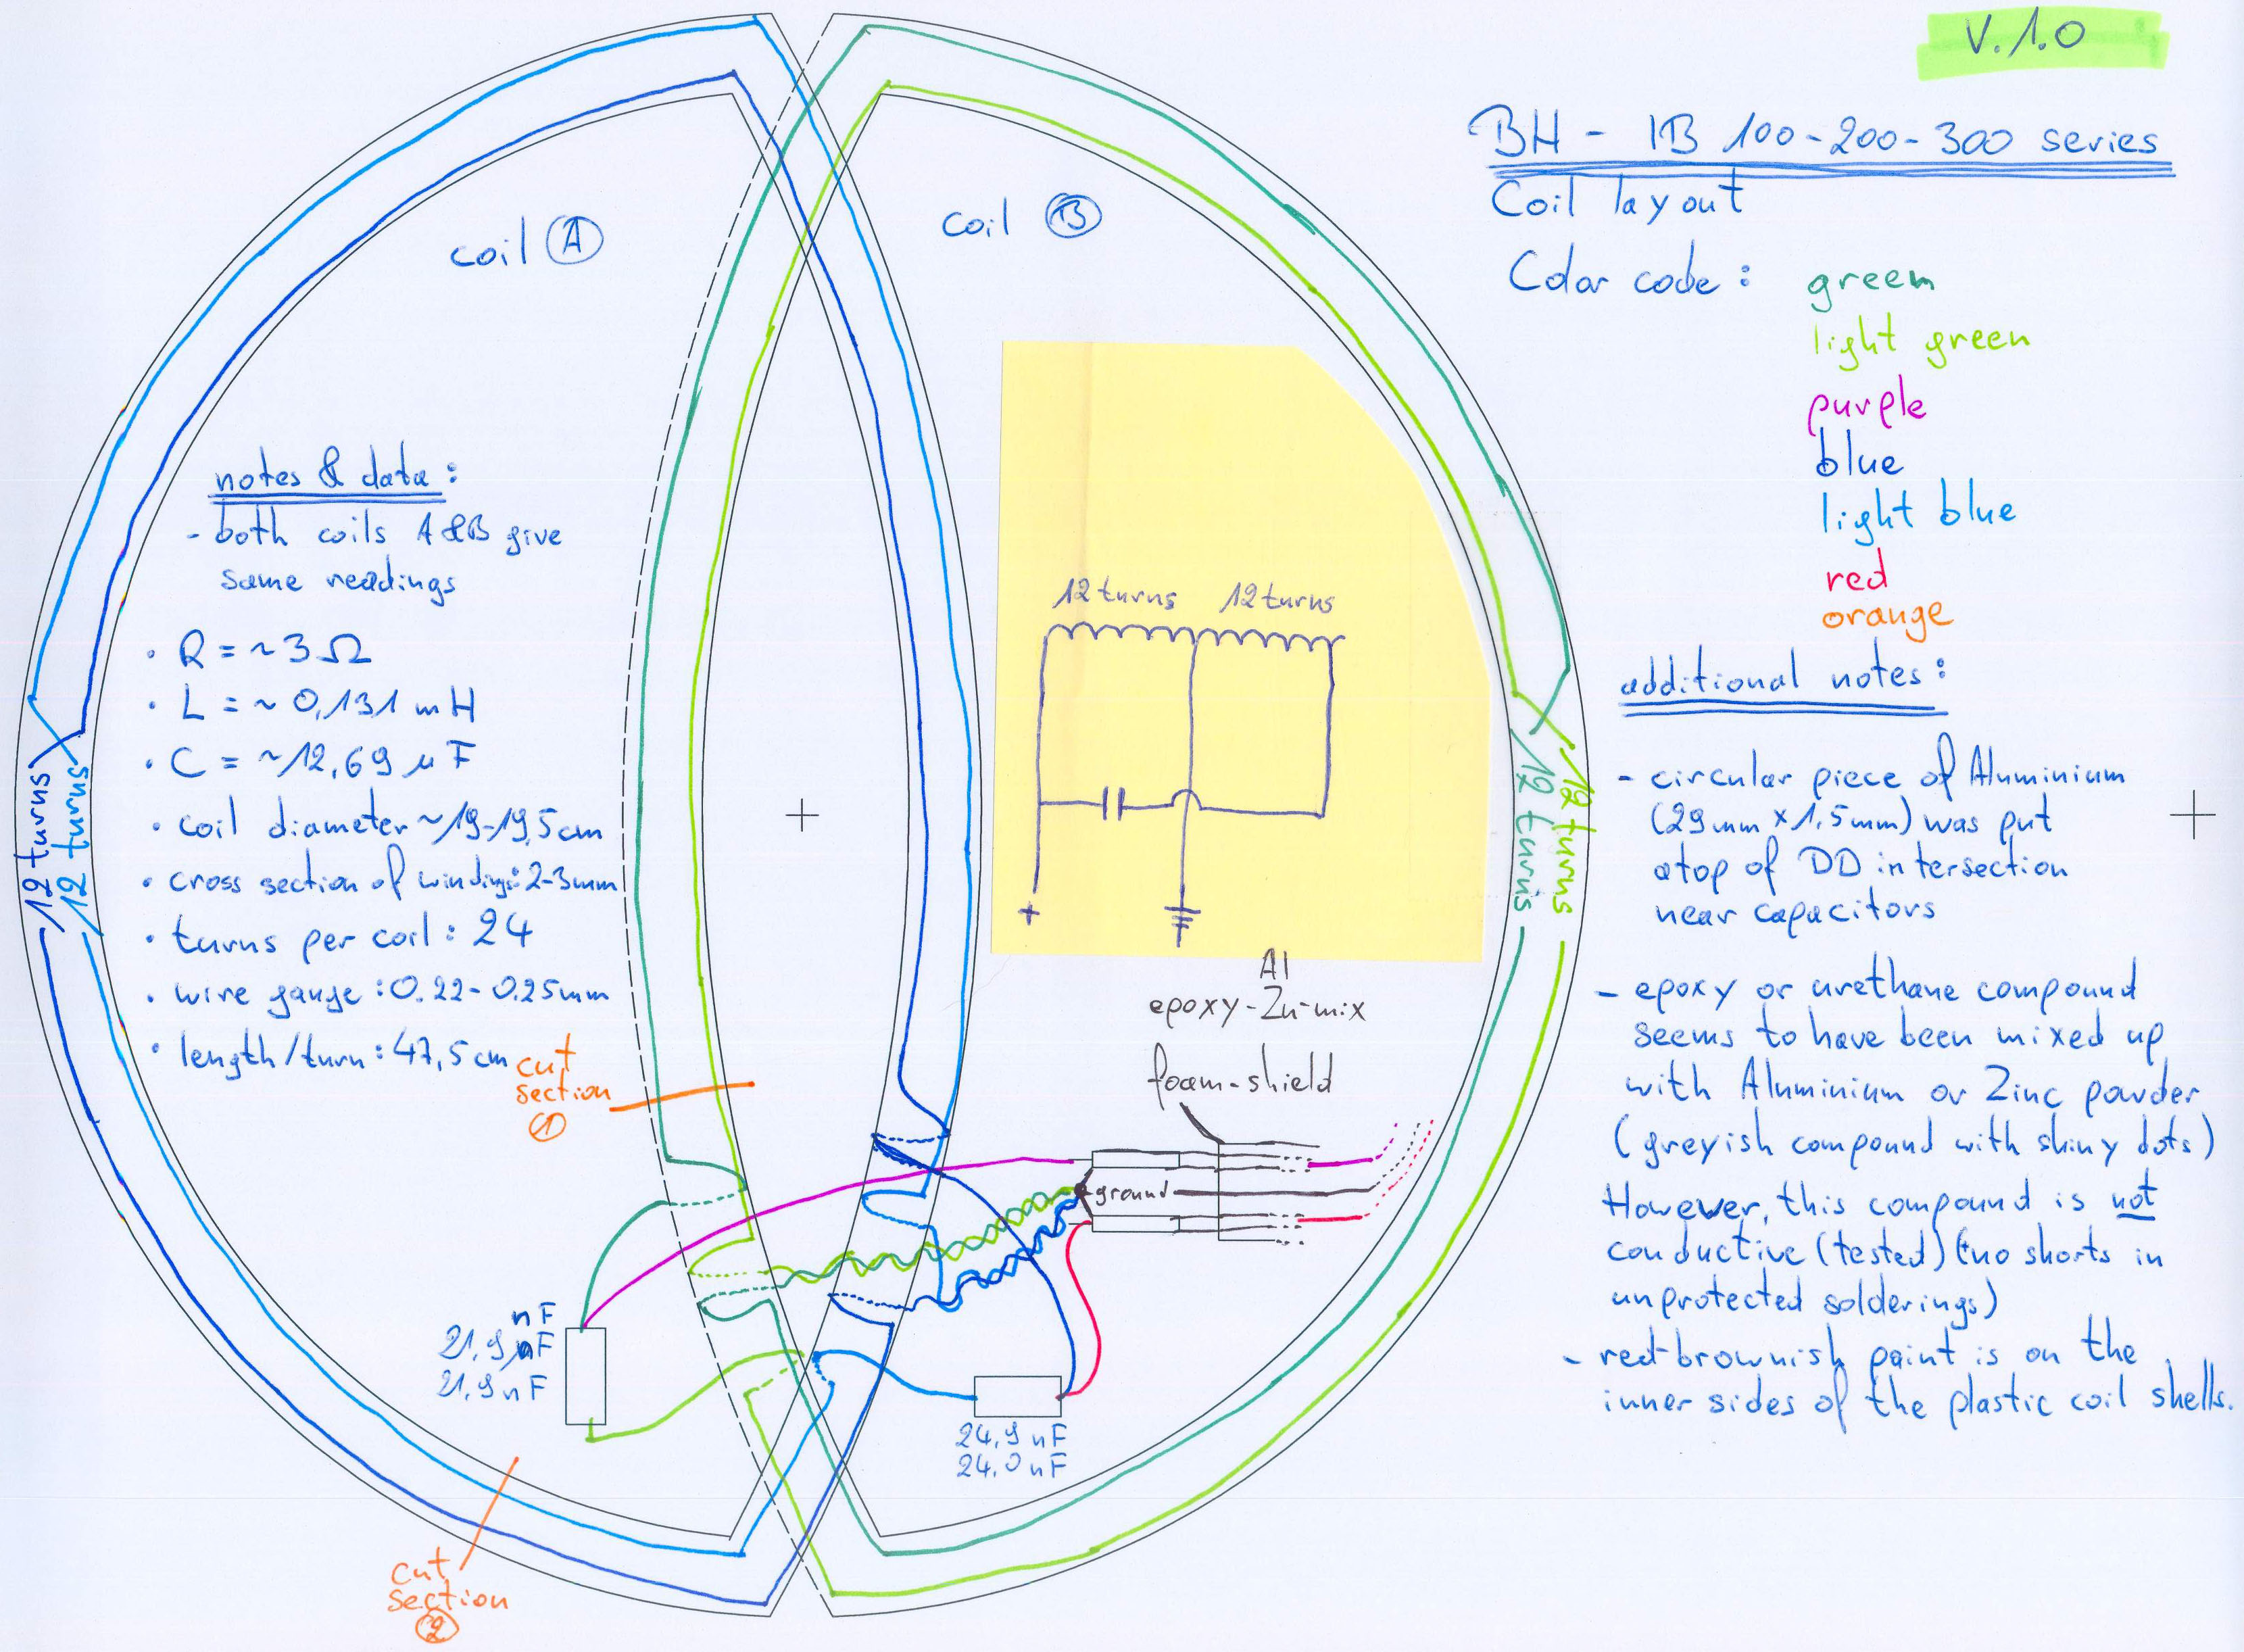 V.1.0
BH - IB 100-200-300 series
Coil layout
Color code :
green
light green
purple
blue
light blue
red
orange
coil A
coil B
notes & data :
- both coils A&B give
same readings
· R = ~3 Ω
· L = ~ 0,131 mH
· C = ~12,69 μF
· coil diameter ~19-19,5cm
· cross section of winding: 2-3mm
· turns per coil : 24
· wire gauge : 0.22-0.25mm
· length/turn : 47,5 cm
12 turns
12 turns
12 turns 12 turns
+
12 turns
12 turns
Al
epoxy-Zn-mix
foam-shield
ground
cut
section
1
nF
21,9 nF
21,9 nF
24,9 nF
24,0 nF
cut
section
2
additional notes :
- circular piece of Aluminium
(29mm x 1,5mm) was put
atop of DD intersection
near capacitors
- epoxy or urethane compound
seems to have been mixed up
with Aluminium or Zinc powder
(greyish compound with shiny dots)
However, this compound is not
conductive (tested) (no shorts in
unprotected solderings)
- red-brownish paint is on the
inner sides of the plastic coil shells.